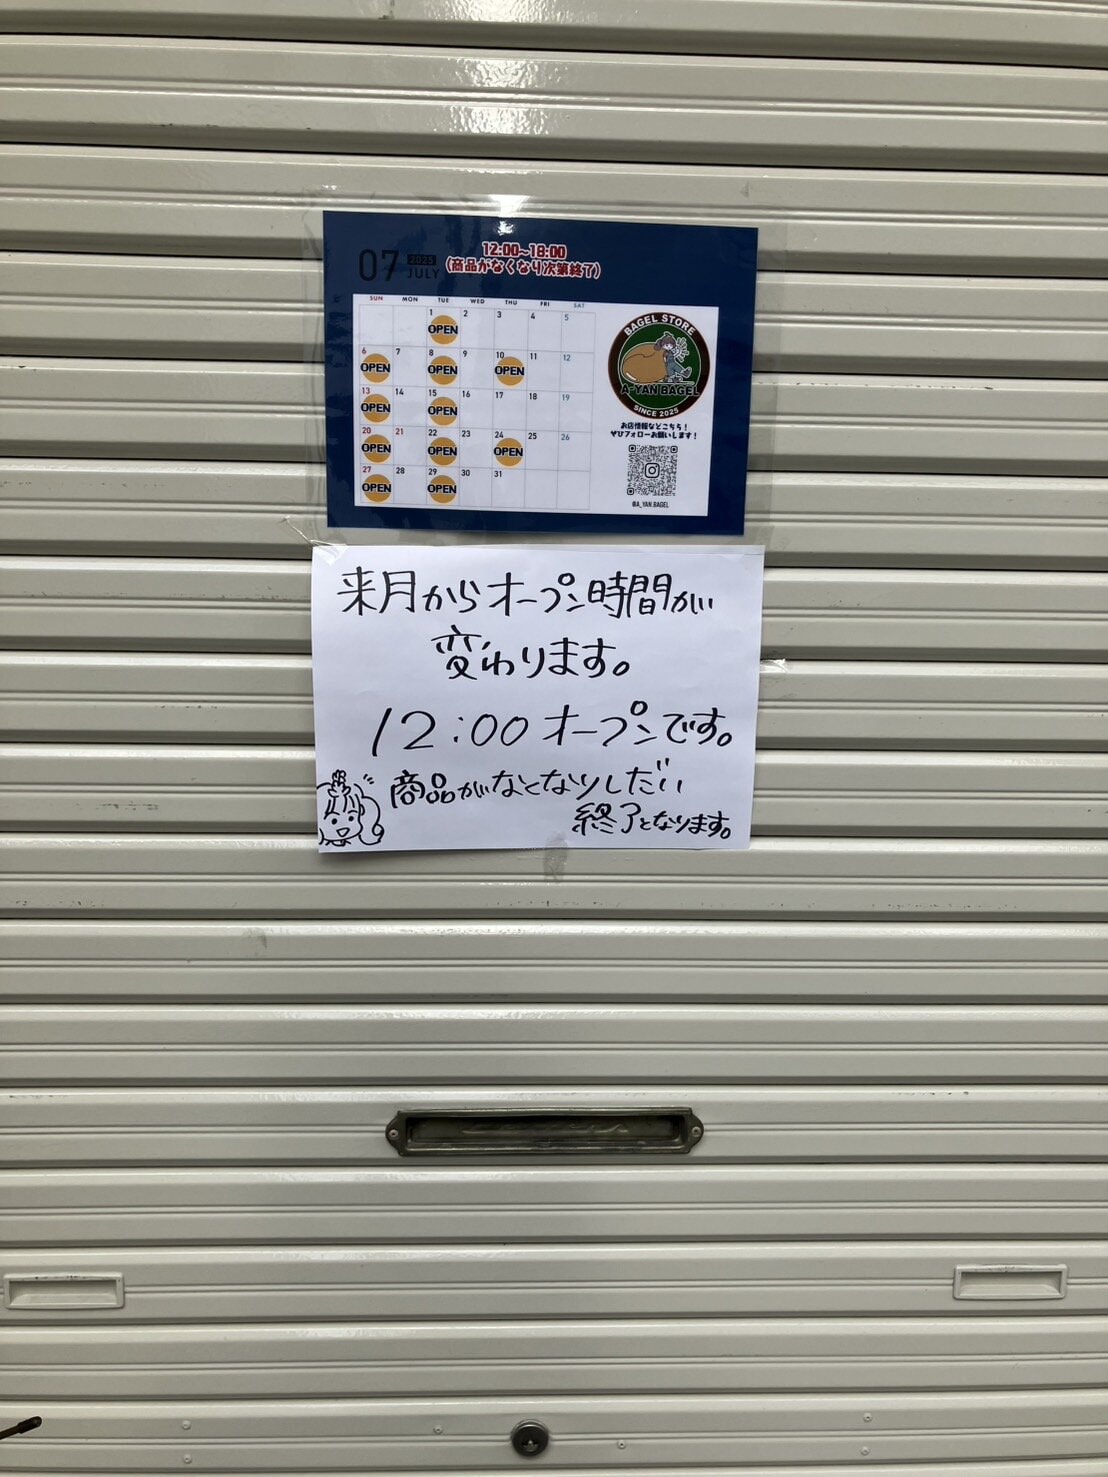 07
2025
JULY
12:00~18:00
(商品がなくなり次第終了)
SUN MON TUE WED THU FRI SAT
1 2 3 4 5
OPEN
6 7 8 9 10 11 12
OPEN OPEN OPEN
13 14 15 16 17 18 19
OPEN OPEN
20 21 22 23 24 25 26
OPEN OPEN OPEN
27 28 29 30 31
OPEN OPEN
BAGEL STORE
A-YAN BAGEL
SINCE 2025
お店情報などこちら!
ぜひフォローお願いします!
@A_YAN.BAGEL
来月からオープン時間が
変わります。
12:00オープンです。
商品がなくなりしだい
終了となります。